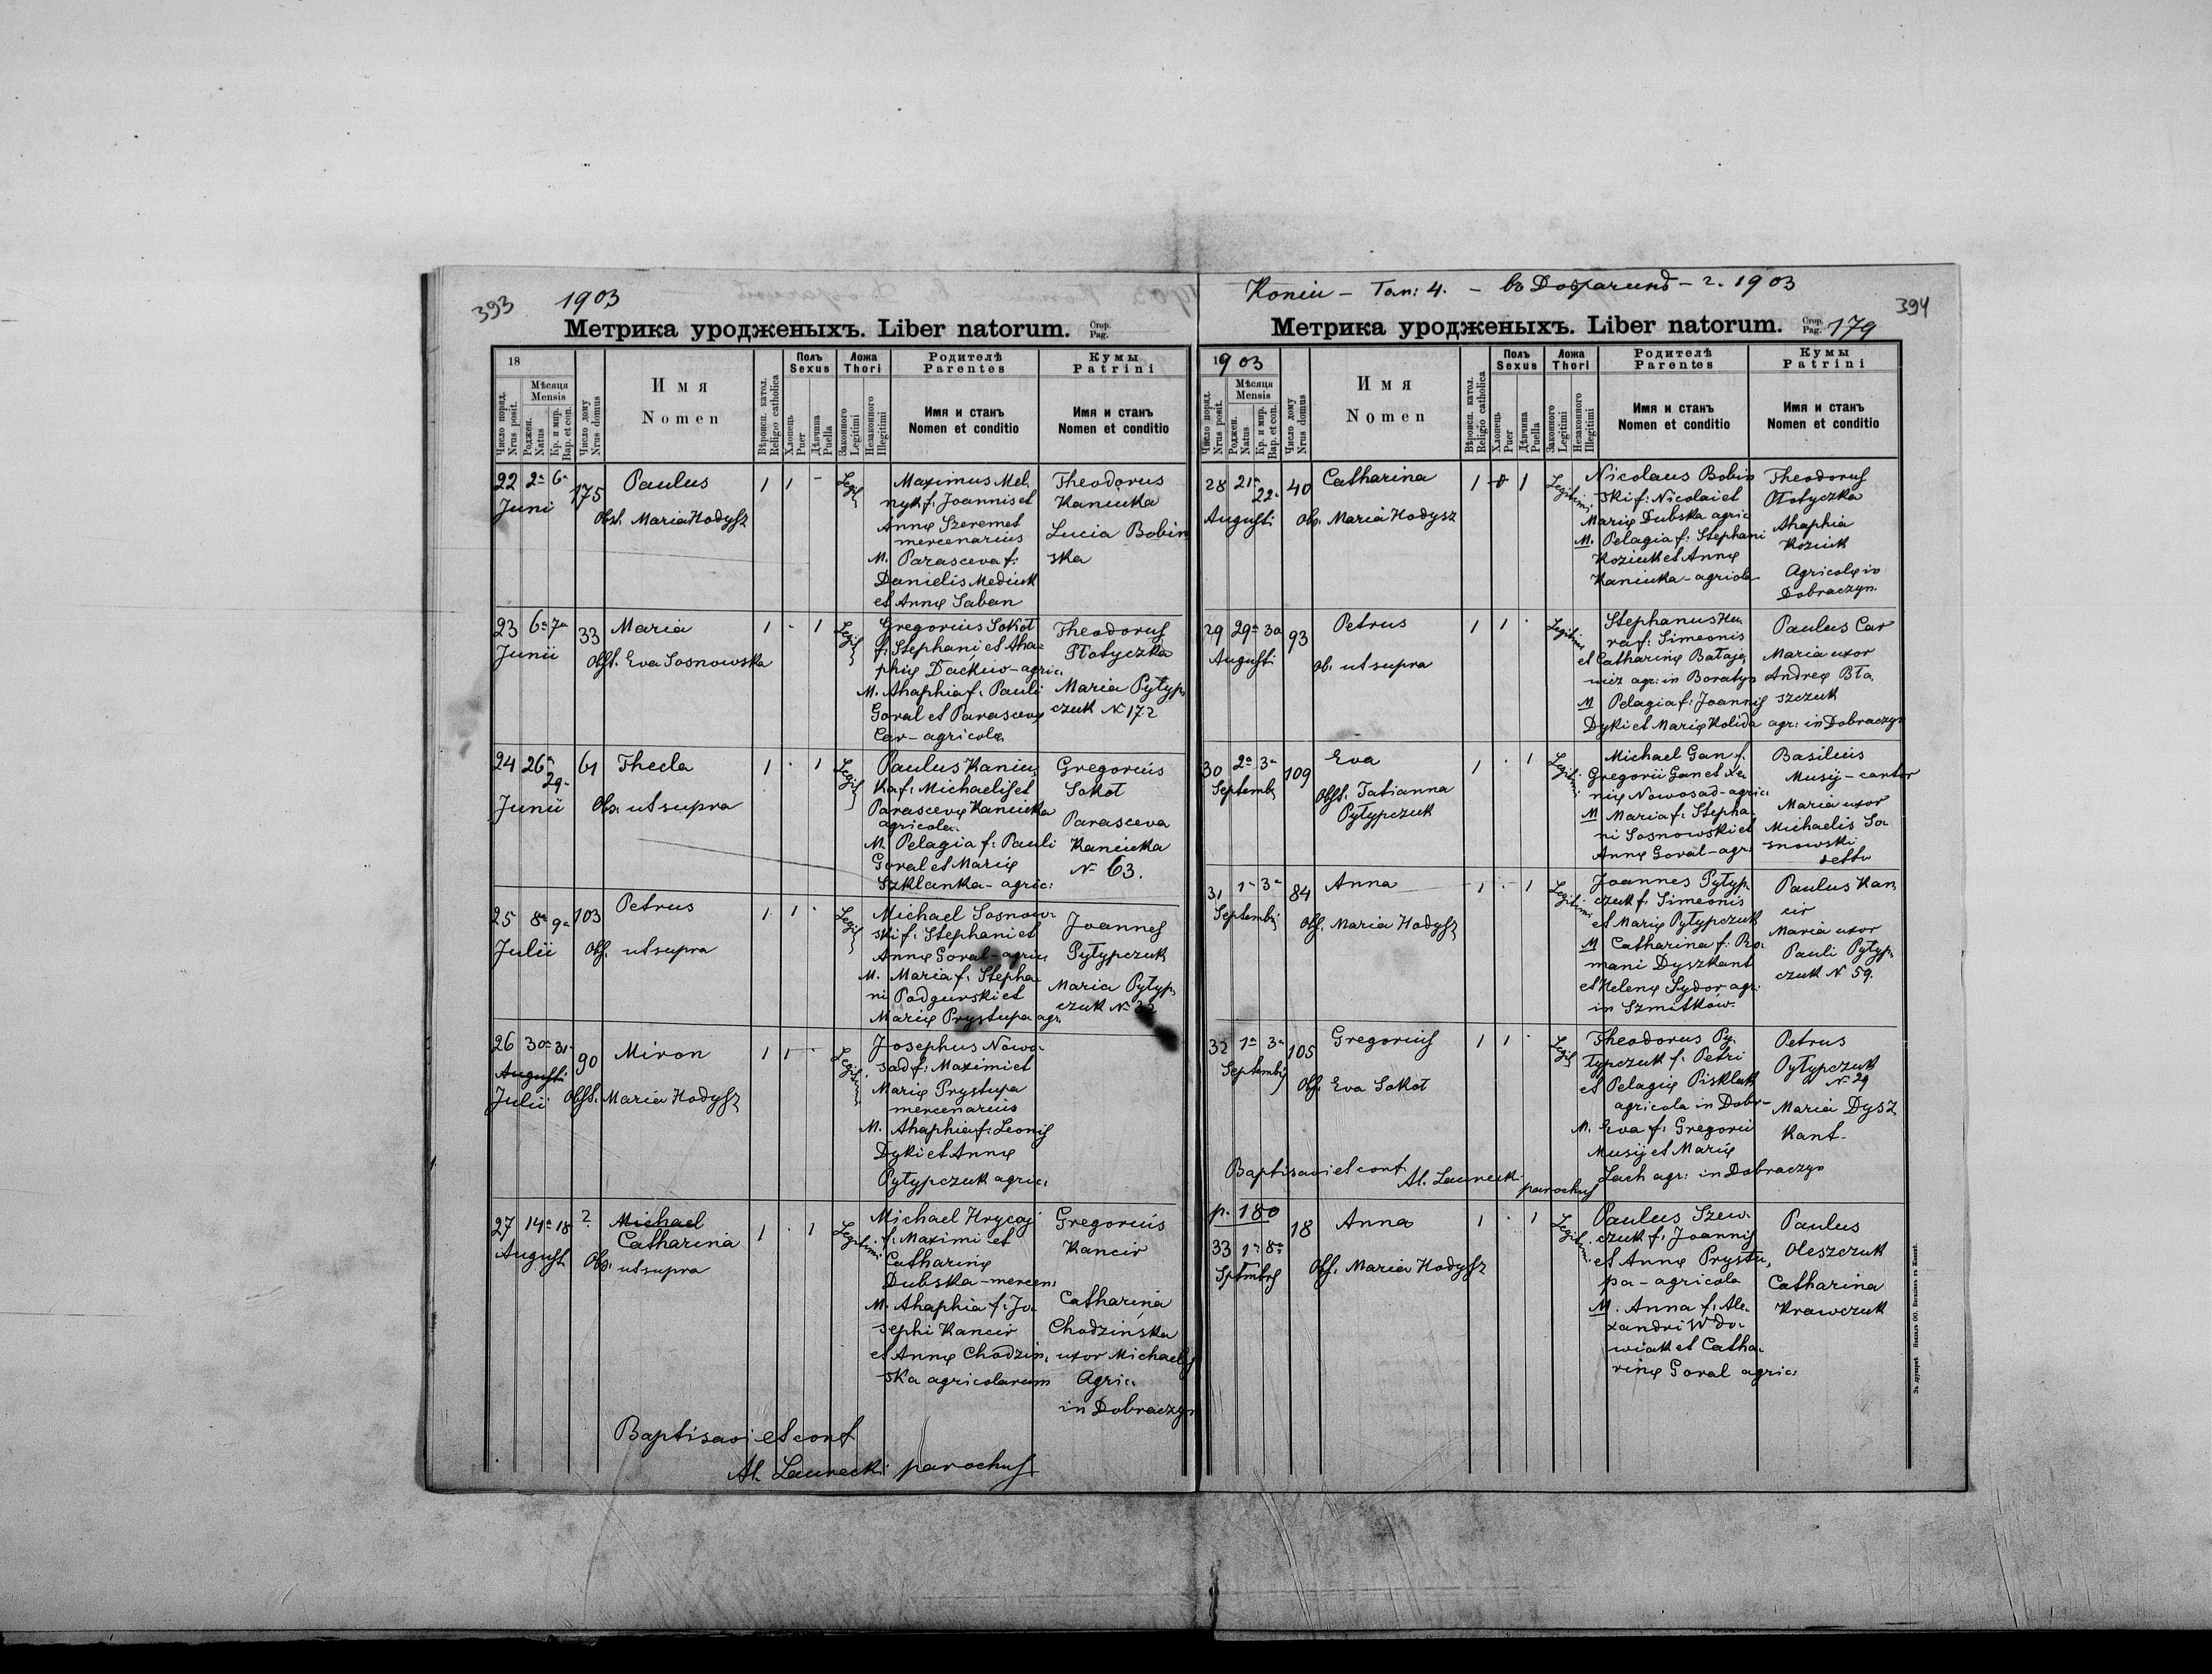 393
1903
Метрика уродженыхъ. Liber natorum.
Стор.
Pag.
18
Число поряд.
Nrus posit.
Мѣсяця
Mensis
Роджен.
Natus
Кр. и мир.
Bap. et con.
Число дому
Nrus domus
Имя
Nomen
Вѣроисп. катол.
Religio catholica
Полъ
Sexus
Хлопець
Puer
Дѣвчина
Puella
Ложа
Thori
Законного
Legitimi
Незаконного
Illegitimi
Родителѣ
Parentes
Имя и станъ
Nomen et conditio
Кумы
Patrini
Имя и станъ
Nomen et conditio
22 2a 6a 175 Paulus 1 1 -
Juni
Obst. Maria Hodysz
Maximus Mel,
nyk f: Joannis et
Annę Szeremet
mercenarius
M. Parasceva f:
Danielis Mediuk
et Annę Saban
Theodorus
Kaniuka
Lucia Bobin
ska
23 6a 7a 33 Maria 1 . 1
Junii
Obst. Eva Sosnowska
Gregorius Sokoł
f: Stephani et Aha=
phię Dackiw - agric.
M. Ahaphia f: Pauli
Goral et Parascevę
Car - agricolę
Theodorus
Płotyczka
Maria Pyłyp,
czuk N 172
24 26a 29a 61 Thecla 1 . 1
Junii
Obs. ut supra
Paulus Kaniu,
ka f: Michaelis et
Parascevę Kaniuka
agricola.
M. Pelagia f: Pauli
Goral et Marię
Szklanka - agric:
Gregorius
Sokoł
Parasceva
Kaniuka
N 63.
25 8a 9a 103 Petrus 1 1 .
Julii
Obs. ut supra
Michael Sosnow
ski f: Stephani et
Annę Goral - agric.
M. Maria f: Stepha
ni Podgurski et
Marię Prystupa agr.
Joannes
Pyłypczuk
Maria Pyłyp,
czuk N
26 30a 31a 90 Miron 1 1 -
Augusti
Julii
Obst. Maria Hodysz
Josephus Nowo
sad f: Maximi et
Marię Prystupa
mercenarius
M. Ahaphia f: Leonis
Dyki et Annę
Pyłypczuk agric.
27 14a 18 ? Michael
Catharina 1 . 1
August
Obs. ut supra
Legitimi
Michael Hrycaj
f: Maximi et
Catharinę
Dubska - mercen:
M. Ahaphia f: Jo
sephi Kancir
et Annę Chodzin,
ska agricolarum
Gregorius
Kancir
Catharina
Chodzińska
uxor Michaelis
Agric.
in Dobraczyn
Baptisavi et conf
Al. Laurecki parochus
394
1903
Метрика уродженыхъ. Liber natorum.
Стор.
Pag. 179
1903
Число поряд.
Nrus posit.
Мѣсяця
Mensis
Роджен.
Natus
Кр. и мир.
Bap. et con.
Число дому
Nrus domus
Имя
Nomen
Вѣроисп. катол.
Religio catholica
Полъ
Sexus
Хлопець
Puer
Дѣвчина
Puella
Ложа
Thori
Законного
Legitimi
Незаконного
Illegitimi
Родителѣ
Parentes
Имя и станъ
Nomen et conditio
Кумы
Patrini
Имя и станъ
Nomen et conditio
28 21a 22a 40 Catharina 1 0 1
Augusti
Obs. Maria Hodysz
Legitimi
Nicolaus Bobin
ski f: Nicolai et
Marię Dubska agric
M. Pelagia f: Stephani
Koziuk et Annę
Kaniuka - agricola
Theodorus
Płotyczka
Ahaphia
Koziuk
Agricolę in
Dobraczyn.
29 29a 30 93 Petrus 1 1 .
Augusti
Ob. ut supra
Legitimi
Stephanus Hu
ra f: Simeonis
et Catharinę Bałaje,
wicz agr: in Boratyn
M Pelagia f: Joannis
Dyki et Marię Kolida
Paulus Car
Maria uxor
Andreę Bła,
szczuk
agr: in Dobraczyn
30 2a 3a 109 Eva 1 . 1
Septemb
Obst. Tatianna
Pyłypczuk
Legitimi
Michael Gan f.
Gregorii Gan et Xe
nię Nowosad - agric:
M Maria f: Stepha
ni Sosnowski et
Annę Goral - agr:
Basilius
Musij - cantor
Maria uxor
Michaelis So
snowski
detto
31 1a 3a 84 Anna 1 . 1
Septembri
Obs. Maria Hodysz
Legitimi
Joannes Pyłyp,
czuk f: Simeonis
et Marię Pyłypczuk
M Catharina f: Ro
mani Dyszkant
et Helenę Sydor agr:
in Szmitków.
Paulus Kan
cir
Maria uxor
Pauli Pyłyp,
czuk N 59.
32 1a 3a 105 Gregorius 1 1 .
Septembris
Obs. Eva Sokoł
Theodorus Py,
łypczuk f: Petri
et Pelagię Pisklak
agricola in Dobr -
M. Eva f: Gregorii
Musij et Marię
Lach agr: in Dobraczyn
Petrus
Pyłypczuk
N. 29
Maria Dysz
kant.
Baptisavi et conf
Al. Laurecki
parochus
p. 180
33 1a 8a 18 Anna 1 . 1
Obs. Maria Hodysz
Legitimi
Paulus Szew
czuk f: Joannis
et Annę Prystu,
pa - agricola
M. Anna f: Ale
xandri Wdo
wiak et Catha
rinę Goral agric:
Paulus
Oleszczuk
Catharina
Krawczuk